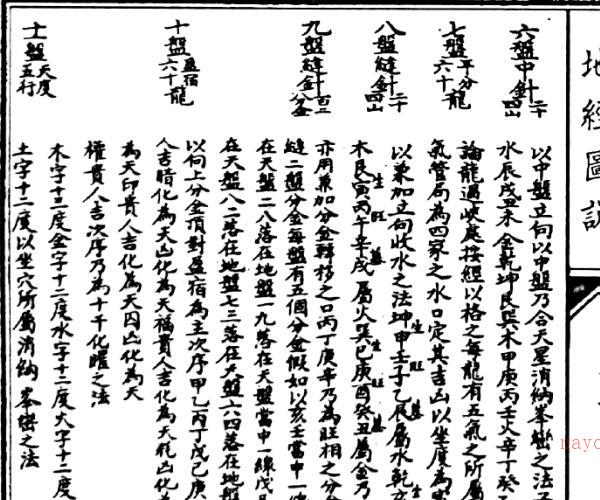 地經圖說
六盤中針二十四山
以中盤立向以中盤乃合天星消納峯巒之法
水辰戌丑未金乾坤艮巽木甲庚丙壬火辛丁癸乙
七盤平分六十龍
論龍過峽處接經以格之每龍有五氣之所屬
氣管局為四家之水口定其吉凶以坐度為
八盤縫針二十四山
以兼加立向收水之法坤申壬子乙辰屬水乾亥
生旺墓
木艮寅丙午辛戌屬火巽巳庚酉癸丑屬金乃
生旺墓 生旺墓
九盤縫針百二分金
亦用兼加分金轉移之口丙丁庚辛乃為旺相之分金
縫二盤分金每盤有五個分金假如以亥壬當中一
在天盤二八落在地盤一九落在天盤當中一線戊
在天盤八二落在地盤七三落在天盤六四落在地盤
十盤盈宿六十龍
以向上分金頂對盈宿為主次序甲乙丙丁戊己庚
人吉暗化為天凶化為天福貴人吉化為天耗凶化為
為天印貴人吉化為天囚凶化為天
權貴人吉次序乃為十干化曜之法
十一盤天度五行
木字十三度金字十二度水字十二度火字十二度
土字十二度以坐穴所屬消納峯巒之法
nayo